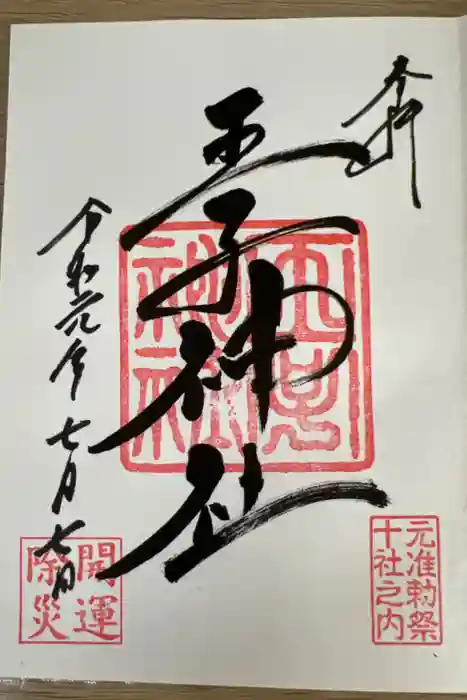 奉拝
王子神社
令和元年七月七日
元准勅祭
十社之内
開運
除災